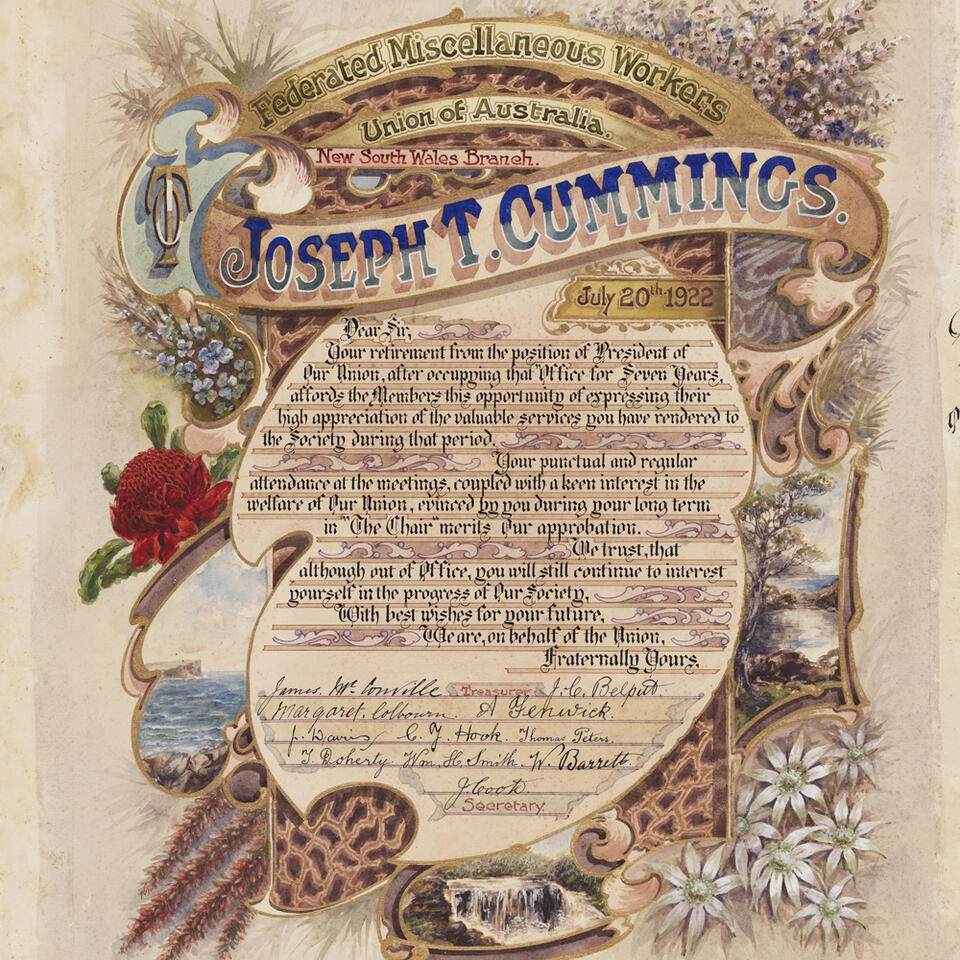 Federated Miscellaneous Workers
Union of Australia.
New South Wales Branch.
JOSEPH T. CUMMINGS.
July 20th 1922
Dear Sir,
Your retirement from the position of President of
Our Union, after occupying that Office for Seven Years,
affords the Members this opportunity of expressing their
high appreciation of the valuable services you have rendered to
the Society during that period.
Your punctual and regular
attendance at the meetings, coupled with a keen interest in the
welfare of Our Union, evinced by you during your long term
in "The Chair" merits Our approbation.
We trust, that
although out of Office, you will still continue to interest
yourself in the progress of Our Society.
With best wishes for your future,
We are, on behalf of the Union,
Fraternally Yours,
James. McConville Treasurer J. C. Belput.
Margaret. Colbourn. A Fenwick.
J. Davis C. J. Hook. Thomas Peters.
T. Doherty. Wm. H. Smith. W. Barrett.
J. Cook.
Secretary.